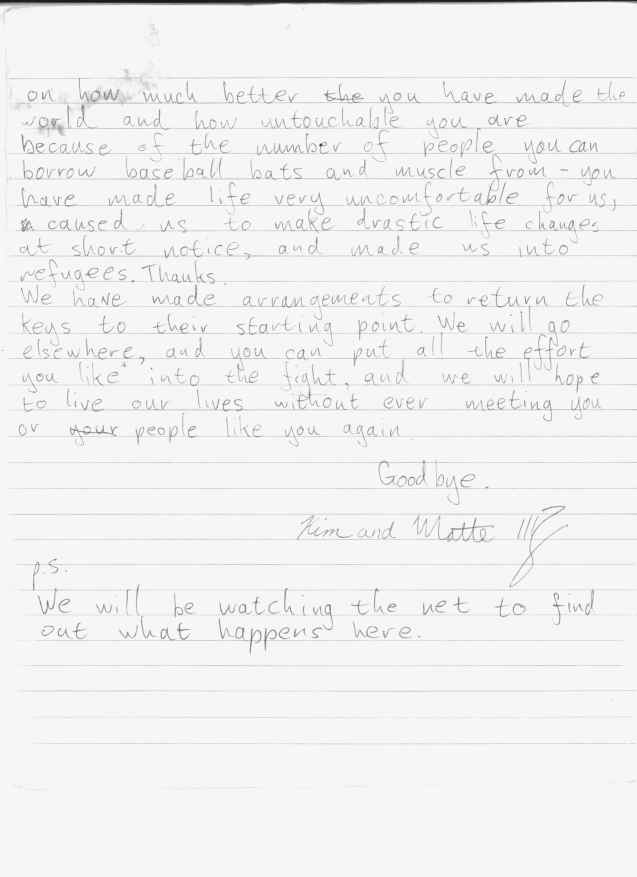 on how much better the you have made the
world and how untouchable you are
because of the number of people you can
borrow baseball bats and muscle from - you
have made life very uncomfortable for us,
caused us to make drastic life changes
at short notice, and made us into
refugees. Thanks.
We have made arrangements to return the
keys to their starting point. We will go
elsewhere, and you can put all the effort
you like into the fight, and we will hope
to live our lives without ever meeting you
or your people like you again.
Goodbye.
Kim and Matte
p.s.
We will be watching the net to find
out what happens here.